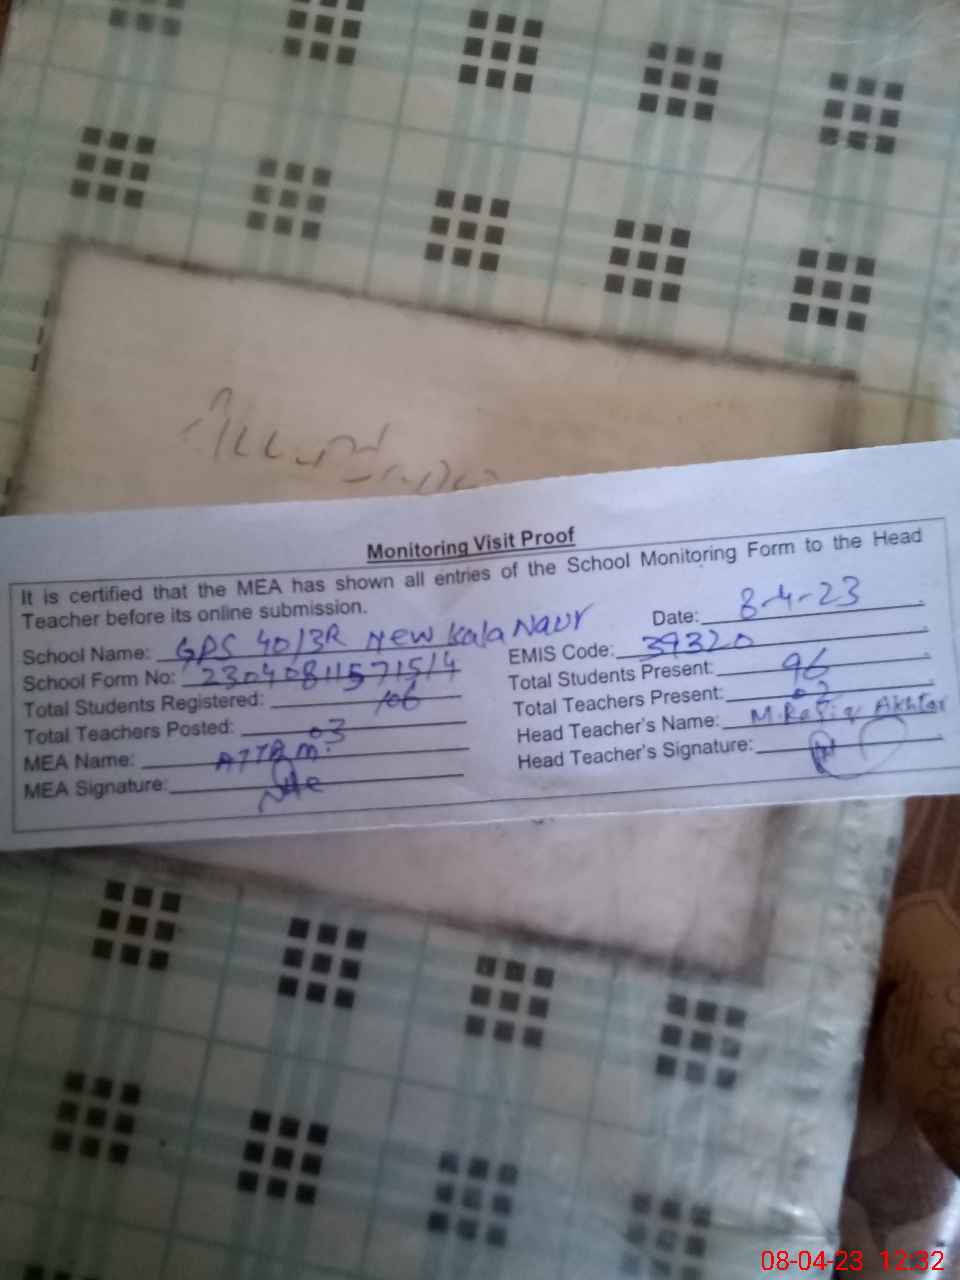 Monitoring Visit Proof
It is certified that the MEA has shown all entries of the School Monitoring Form to the Head
Teacher before its online submission.
Date: 8-4-23
School Name: GPS 40/3R New Kala Naur
EMIS Code: 39320
School Form No: 23040811571514
Total Students Present: 96
Total Students Registered: 106
Total Teachers Present: 03
Total Teachers Posted: 03
Head Teacher's Name: M. Rafiq Akhtar
MEA Name:
Head Teacher's Signature:
MEA Signature:
08-04-23 12:32